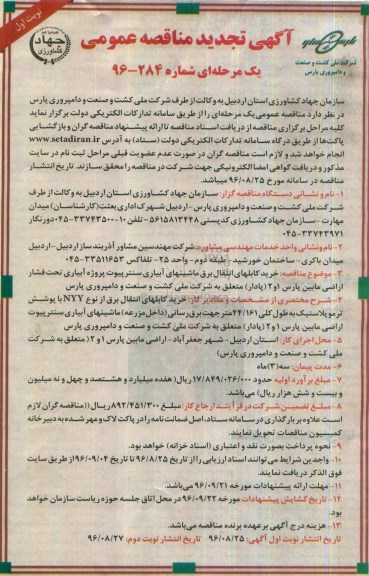 نوبت اول
جهاد
کشاورزی
شرکت ملی کشت و صنعت
و دامپروری پارس
آگهی تجدید مناقصه عمومی
یک مرحله‌ای شماره ۲۸۴-۹۶
سازمان جهاد کشاورزی استان اردبیل به وکالت از طرف شرکت ملی کشت و صنعت و دامپروری پارس
در نظر دارد مناقصه عمومی یک مرحله‌ای را از طریق سامانه تدارکات الکترونیکی دولت برگزار نماید
کلیه مراحل برگزاری مناقصه از دریافت اسناد مناقصه تا ارائه پیشنهاد مناقصه گران و بازگشایی
پاکت‌ها از طریق درگاه سامانه تدارکات الکترونیکی دولت (ستاد) به آدرس www.setadiran.ir
انجام خواهد شد و لازم است مناقصه گران در صورت عدم عضویت قبلی مراحل ثبت نام در سایت
مذکور و دریافت گواهی امضا الکترونیکی جهت شرکت در مناقصه را محقق سازند. تاریخ انتشار
مناقصه در سامانه مورخ ۹۶/۰۸/۲۵ میباشد.
۱- نام و نشانی دستگاه مناقصه گزار: سازمان جهاد کشاورزی استان اردبیل به وکالت از طرف
شرکت ملی کشت و صنعت و دامپروری پارس - اردبیل شهرک اداری بعثت (کارشناسان) میدان
مهارت - سازمان جهاد کشاورزی کدپستی ۵۶۱۵۸۱۳۴۴۸ - تلفن ۱۰-۳۳۷۴۳۵۰۰-۰۴۵ دورنگار
۰۴۵-۳۳۷۴۳۹۷۱
۲- نام و نشانی واحد خدمات مهندسی مشاور: شرکت مهندسین مشاور آذربند ساز اردبیل - اردبیل
میدان باکری - ساختمان خورشید - طبقه دوم - واحد ۲۵ - تلفاکس ۳۳۵۱۱۶۵۳-۰۴۵
۳- موضوع مناقصه: خرید کابلهای انتقال برق ماشینهای آبیاری سنتر پیوت پروژه آبیاری تحت فشار
اراضی مابین پارس ۱ و ۲ (پادار) متعلق به شرکت ملی کشت و صنعت و دامپروری پارس
۴- شرح مختصری از مشخصات و مقادیر کار: خرید کابلهای انتقال برق از نوع NYY با پوشش
ترموپلاستیک به طول کلی ۴۴/۱۶۱ متر جهت برق رسانی (داخل مزرعه) ماشینهای آبیاری سنتر پیوت
اراضی مابین پارس ۱ و ۲ (پادار) متعلق به شرکت ملی کشت و صنعت و دامپروری پارس
۵- محل اجرای کار: استان اردبیل - شهر جعفرآباد - اراضی مابین پارس ۱ و ۲ (متعلق به شرکت
ملی کشت و صنعت و دامپروری پارس)
۶- مدت پیمان: سه (۳) ماه
۷- مبلغ برآورد اولیه حدود ۱۷/۸۴۹/۰۲۶/۰۰۰ ریال (هفده میلیارد و هشتصد و چهل و نه میلیون
و بیست و شش هزار ریال) می‌باشد.
۸- مبلغ تضمین شرکت در فرآیند ارجاع کار: مبلغ ۸۹۲/۴۵۱/۳۰۰ ریال ((مناقصه گران لازم
است علاوه بر بارگذاری در سامانه ستاد، اصل ضمانت نامه را در پاکت لاک و مهر شده به دبیرخانه
کمیسیون مناقصات تحویل نمایند.
۹- نحوه پرداخت بصورت نقد و اعتباری (اسناد خزانه) خواهد بود.
۱۰- واجدین شرایط می‌توانند اسناد ارزیابی را از تاریخ ۹۶/۸/۲۵ تا تاریخ ۹۶/۰۹/۰۴ از طریق سایت
فوق الذکر دریافت نمایند.
۱۱- مهلت ارائه پیشنهادات مورخه ۹۶/۰۹/۲۱ می‌باشد.
۱۲- تاریخ گشایش پیشنهادات مورخه ۹۶/۰۹/۲۲ در محل اتاق جلسه حوزه ریاست سازمان خواهد
بود.
۱۳- هزینه درج آگهی بر عهده برنده مناقصه می‌باشد.
تاریخ انتشار نوبت اول آگهی: ۹۶/۰۸/۲۵ تاریخ انتشار نوبت دوم: ۹۶/۰۸/۲۷